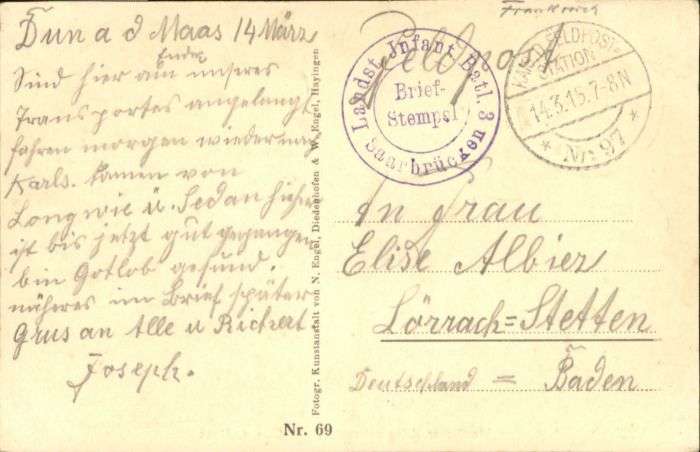 Dun a d Maas 14 März
Sind hier am Ende unseres
Transportes angelangt
fahren morgen wieder nach
Karls. kamen von
Longwie u. Sedan hieher
ist bis jetzt gut gegangen
bin Gotlob gesund.
näheres im Brief später
Grus an Alle u Richert
Joseph.
Fotogr. Kunstanstalt von N. Engel, Diedenhofen & W. Engel, Hayingen
Nr. 69
Frankreich
Feldpost
Landst. Infant. Batl. 3
Brief-
Stempel
Saarbrücken
KAIS. D. FELDPOST-
STATION
14.3.15. 7-8N
* Nr. 97 *
An Frau
Elise Albiez
Lörrach=Stetten
Deutschland = Baden